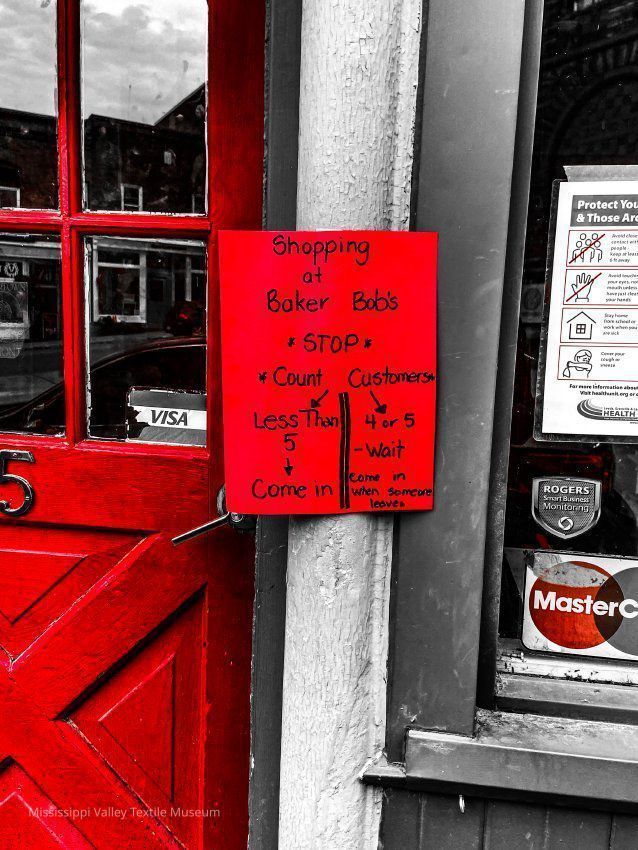 Shopping
at
Baker Bob's
* STOP *
* Count Customers*
Less Than
5
Come in
4 or 5
-Wait
Come in
when someone
leaves
VISA
5
Protect You
& Those Aro
Avoid close
contact with
people
Keep at least
6 ft away
Avoid touching
your eyes, nose
mouth unless
have just clean
your hands
Stay home
from school or
work when you
are sick
Cover your
cough or
sneeze
For more information about
Visit healthunit.org or c
HEALTH
ROGERS
Smart Business
Monitoring
MasterC
Mississippi Valley Textile Museum